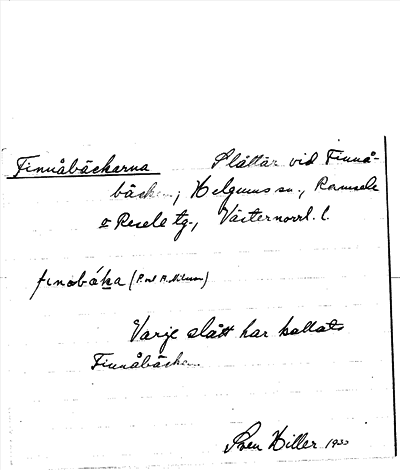 Finnåbäckarna Slåttar vid Finnå-
bäcken, Helgums sn., Ramsele
o Resele tg., Västernorrl. l.
finobäka (
Varje slått har kallats
Finnåbäcken.
Sven Hiller 1930